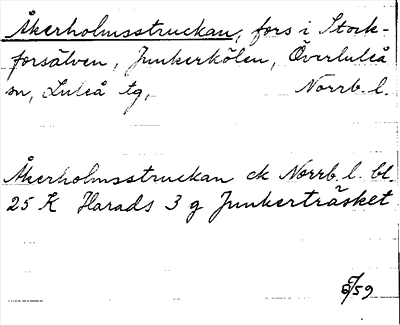 Åkerholmsstruckan, fors i Stock-
forsälven, Junkerkölen, Överluleå
sn, Luleå tg, Norrb. l.
Åkerholmsstruckan ek Norrb. l. bl
25 K Harads 3 g Junkerträsket
6/59